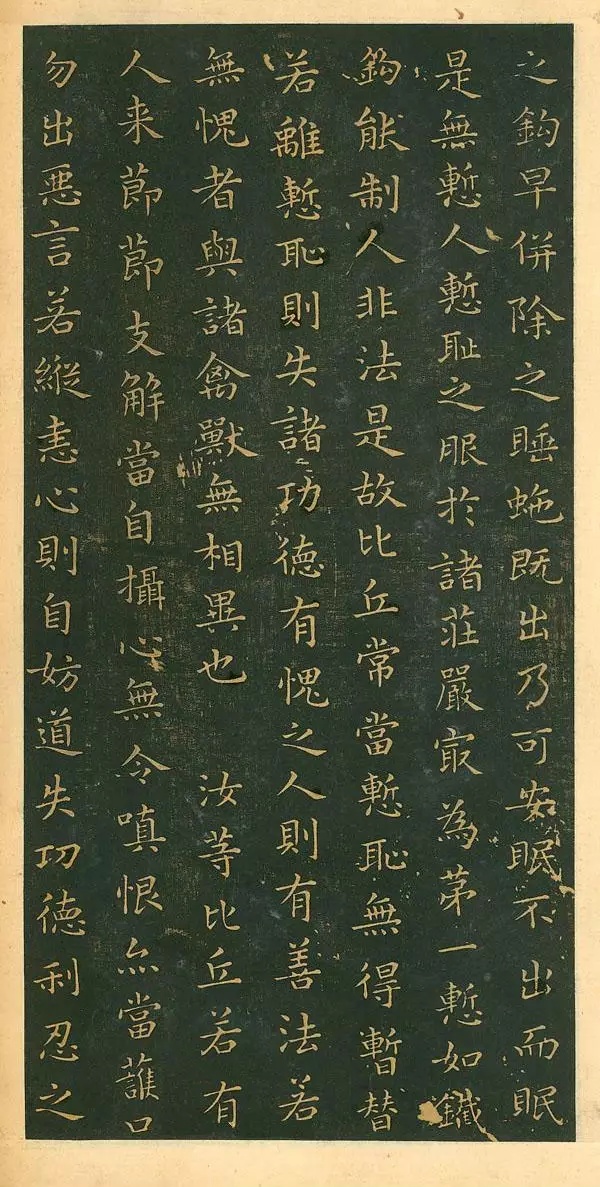 之鈎早併除之睡虵既出乃可安眠不出而眠
是無慙人慙耻之服於諸莊嚴冣為苐一慙如鐵
鈎能制人非法是故比丘常當慙恥無得暫替
若離慙恥則失諸功德有愧之人則有善法若
無愧者與諸禽獸無相異也 汝䓁比丘若有
人来節節支解當自攝心無令嗔恨尒當護口
勿出惡言若縱恚心則自妨道失功德利忍之